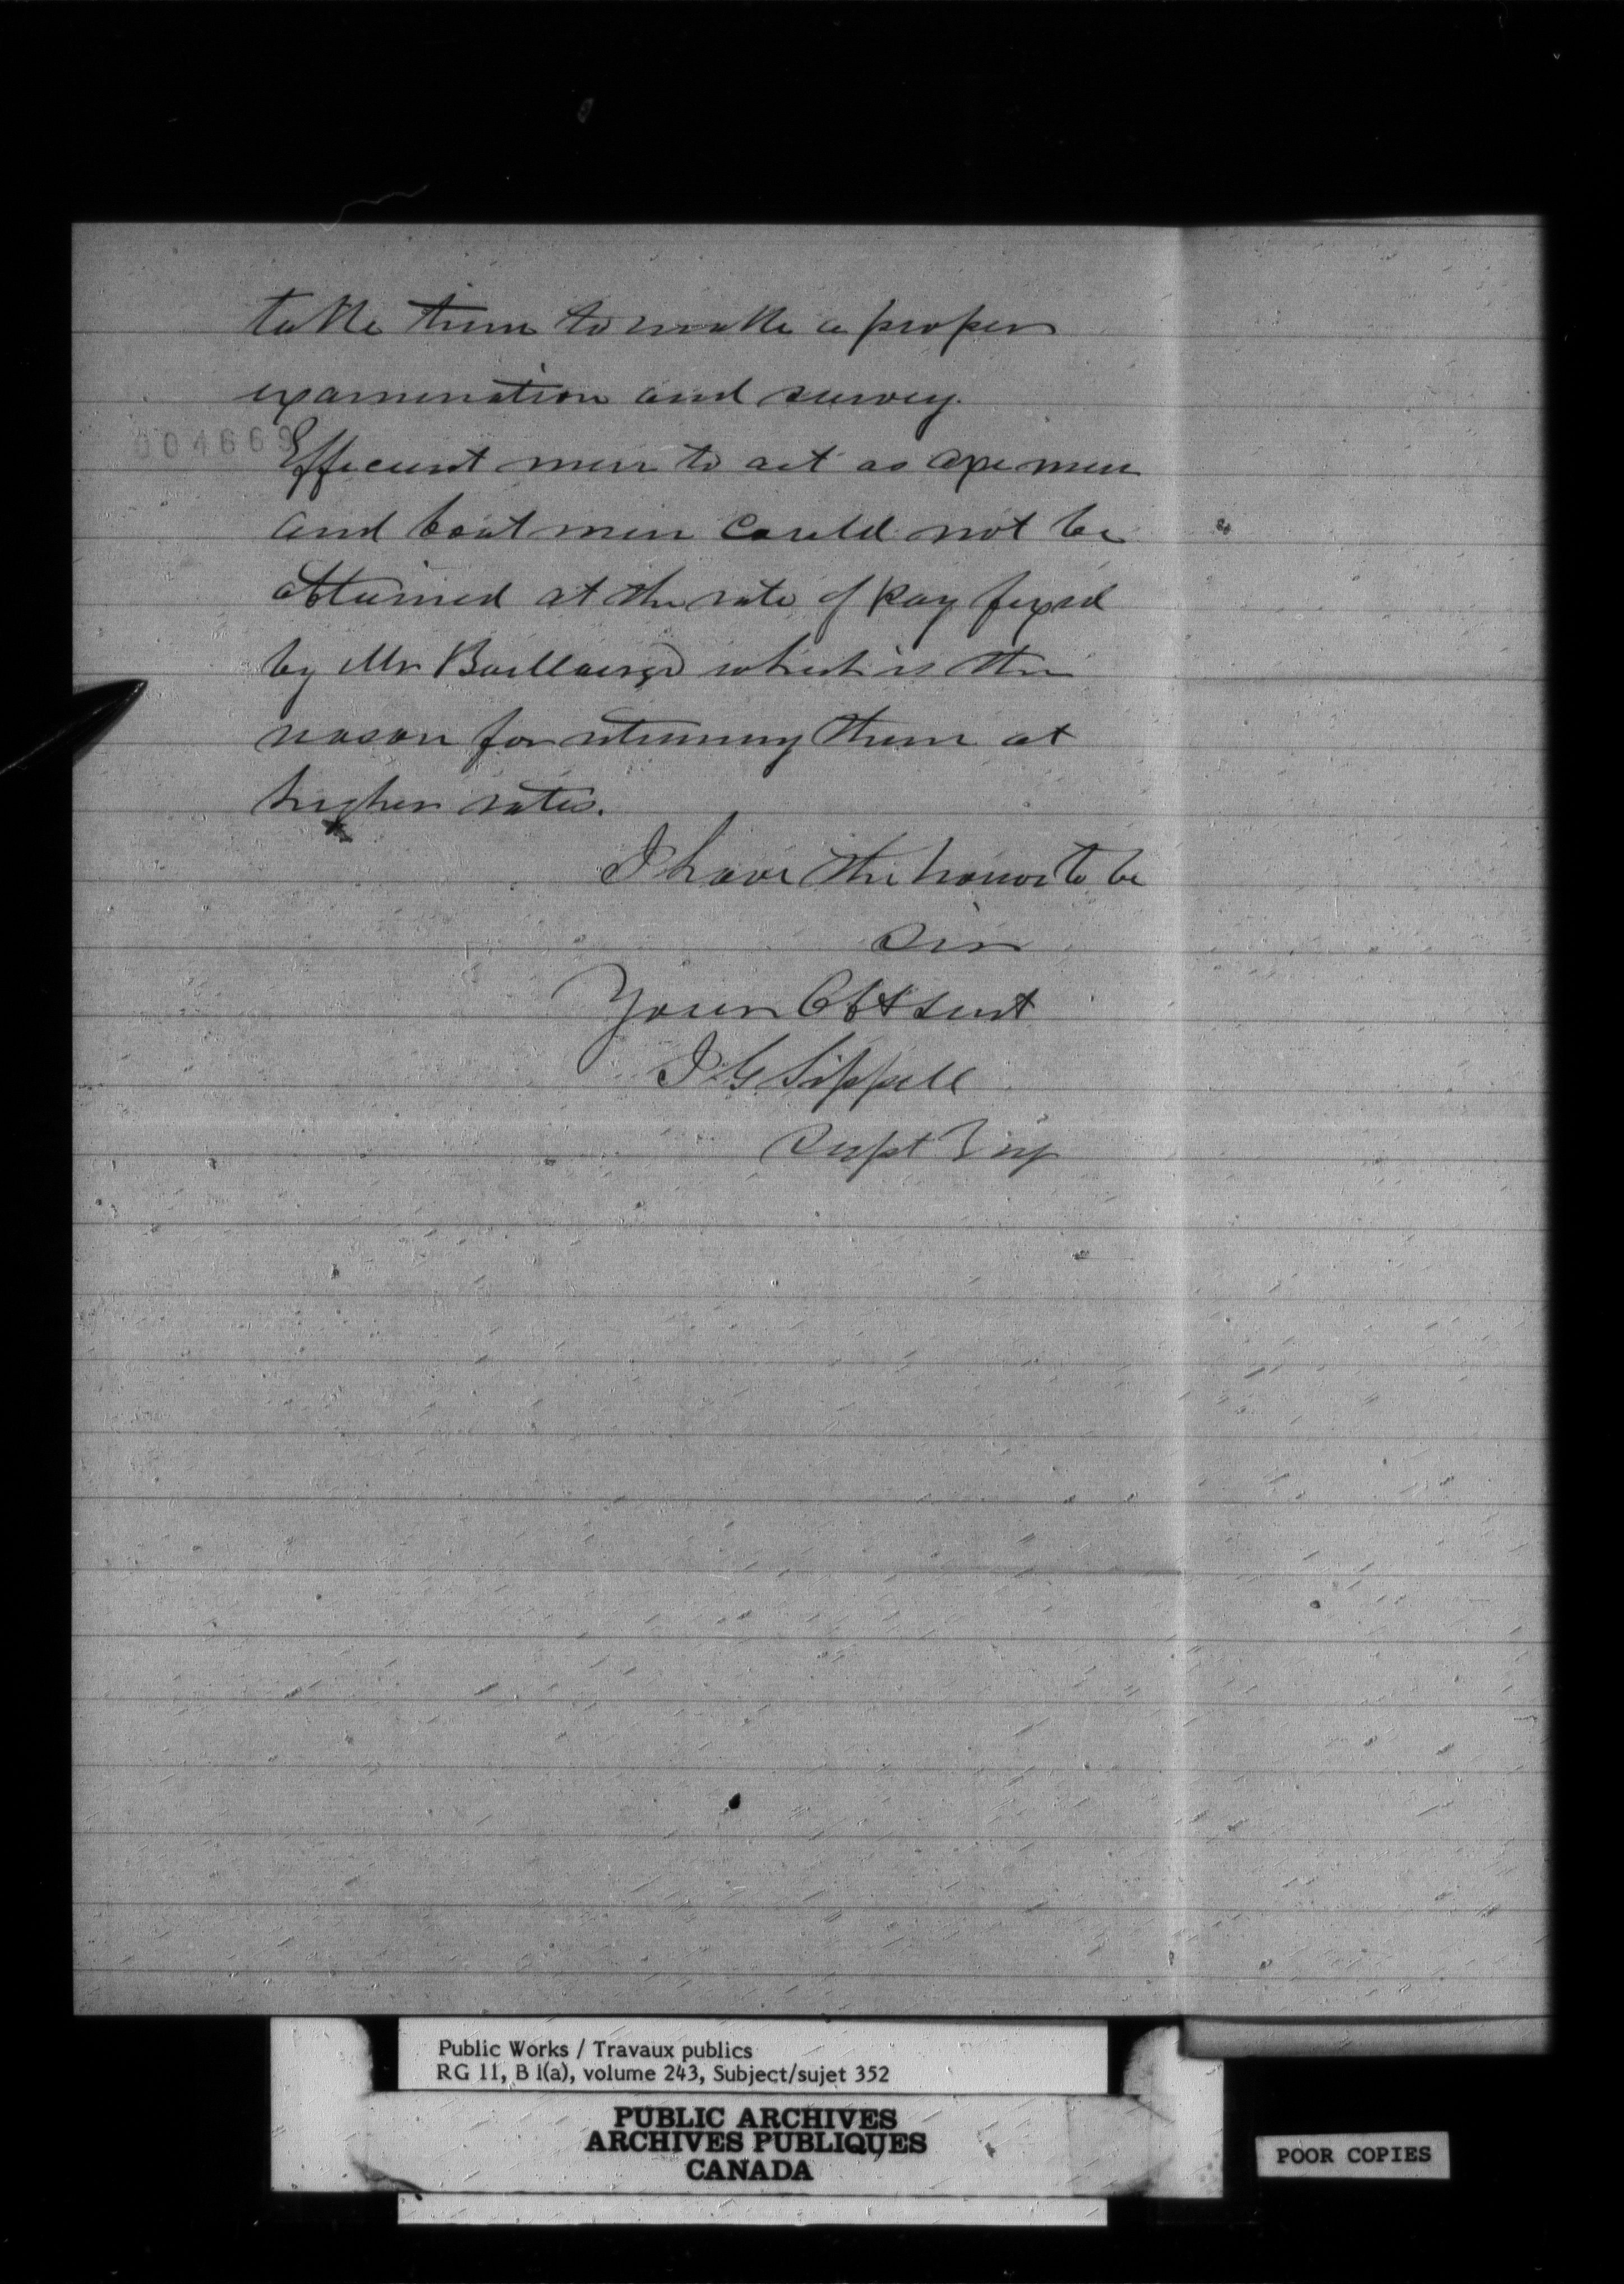 take time to make a proper
examination and survey.
004669
Efficient men to act as axe men
and boat men could not be
obtained at the rate of pay fixed
by Mr Baillairge which is the
reason for returning them at
higher rates.
I have the honor to be
Sir
Your Obt Servt
J G Sippell
Supt Eng
Public Works / Travaux publics
RG 11, B 1(a), volume 243, Subject/sujet 352
PUBLIC ARCHIVES
ARCHIVES PUBLIQUES
CANADA
POOR COPIES